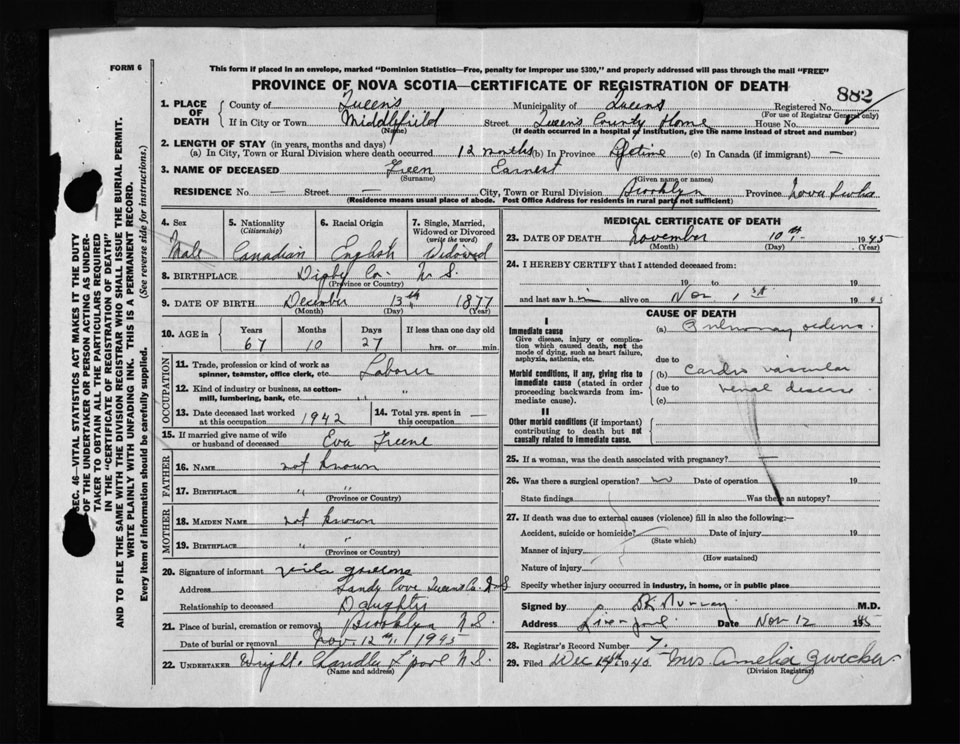 FORM 6
This form if placed in an envelope, marked "Dominion Statistics—Free, penalty for improper use $300," and properly addressed will pass through the mail "FREE"
PROVINCE OF NOVA SCOTIA—CERTIFICATE OF REGISTRATION OF DEATH
882
1. PLACE OF DEATH County of Queens Municipality of Queens Registered No.
(For use of Registrar General only)
If in City or Town Middlefield Street Queens County Home House No.
(Name) (If death occurred in a hospital or institution, give the name instead of street and number)
2. LENGTH OF STAY (in years, months and days)
(a) In City, Town or Rural Division where death occurred 12 months (b) In Province Lifetime (c) In Canada (if immigrant) —
3. NAME OF DECEASED Freen Earnest
(Surname) (Given name or names)
RESIDENCE No. — Street — City, Town or Rural Division Brooklyn Province Nova Scotia
(Residence means usual place of abode. Post Office Address for residents in rural parts not sufficient)
4. Sex Male
5. Nationality (Citizenship) Canadian
6. Racial Origin English
7. Single, Married, Widowed or Divorced (write the word) Widowed
8. BIRTHPLACE Digby Co. N S.
(Province or Country)
9. DATE OF BIRTH December 13th 1877
(Month) (Day) (Year)
10. AGE in Years 67 Months 10 Days 27 If less than one day old hrs. or min.
OCCUPATION
11. Trade, profession or kind of work as spinner, teamster, office clerk, etc. Laborer
12. Kind of industry or business, as cotton-mill, lumbering, bank, etc. "
13. Date deceased last worked at this occupation 1942
14. Total yrs. spent in —
15. If married give name of wife or husband of deceased Eva Freene
FATHER
16. NAME not known
17. BIRTHPLACE " "
(Province or Country)
MOTHER
18. MAIDEN NAME not known
19. BIRTHPLACE " "
(Province or Country)
20. Signature of informant
Address Sandy Cove Queens Co. N.S
Relationship to deceased Daughter
21. Place of burial, cremation or removal Brooklyn N.S.
Date of burial or removal Nov. 12th, 1945
22. UNDERTAKER Wright Chandler L'pool N S.
(Name and address)
MEDICAL CERTIFICATE OF DEATH
23. DATE OF DEATH November 10th 1945
(Month) (Day) (Year)
24. I HEREBY CERTIFY that I attended deceased from:
19 to 19
and last saw him alive on Nov 1st 1945
CAUSE OF DEATH
I
Immediate cause
Give disease, injury or complication which caused death, not the mode of dying, such as heart failure, asphyxia, asthenia, etc.
(a) Pulmonary oedema.
due to
Morbid conditions, if any, giving rise to immediate cause (stated in order proceeding backwards from immediate cause).
(b) Cardio vascular
due to renal disease
(c)
II
Other morbid conditions (if important) contributing to death but not causally related to immediate cause.
25. If a woman, was the death associated with pregnancy? —
26. Was there a surgical operation? no Date of operation 19
State findings Was there an autopsy?
27. If death was due to external causes (violence) fill in also the following:—
Accident, suicide or homicide? Date of injury 19
(State which)
Manner of injury
(How sustained)
Nature of injury
Specify whether injury occurred in industry, in home, or in public place
Signed by Murray M.D.
Address Liverpool Date Nov 12 1945
28. Registrar's Record Number 7.
29. Filed Dec 14th 1945 Mrs. Amelia Zwicker
(Division Registrar)
SEC. 46—VITAL STATISTICS ACT MAKES IT THE DUTY
OF THE UNDERTAKER OR PERSON ACTING AS UNDER-
TAKER TO OBTAIN ALL THE PARTICULARS REQUIRED
IN THE "CERTIFICATE OF REGISTRATION OF DEATH"
AND TO FILE THE SAME WITH THE DIVISION REGISTRAR WHO SHALL ISSUE THE BURIAL PERMIT.
WRITE PLAINLY WITH UNFADING INK. THIS IS A PERMANENT RECORD.
Every item of information should be carefully supplied. (See reverse side for instructions.)